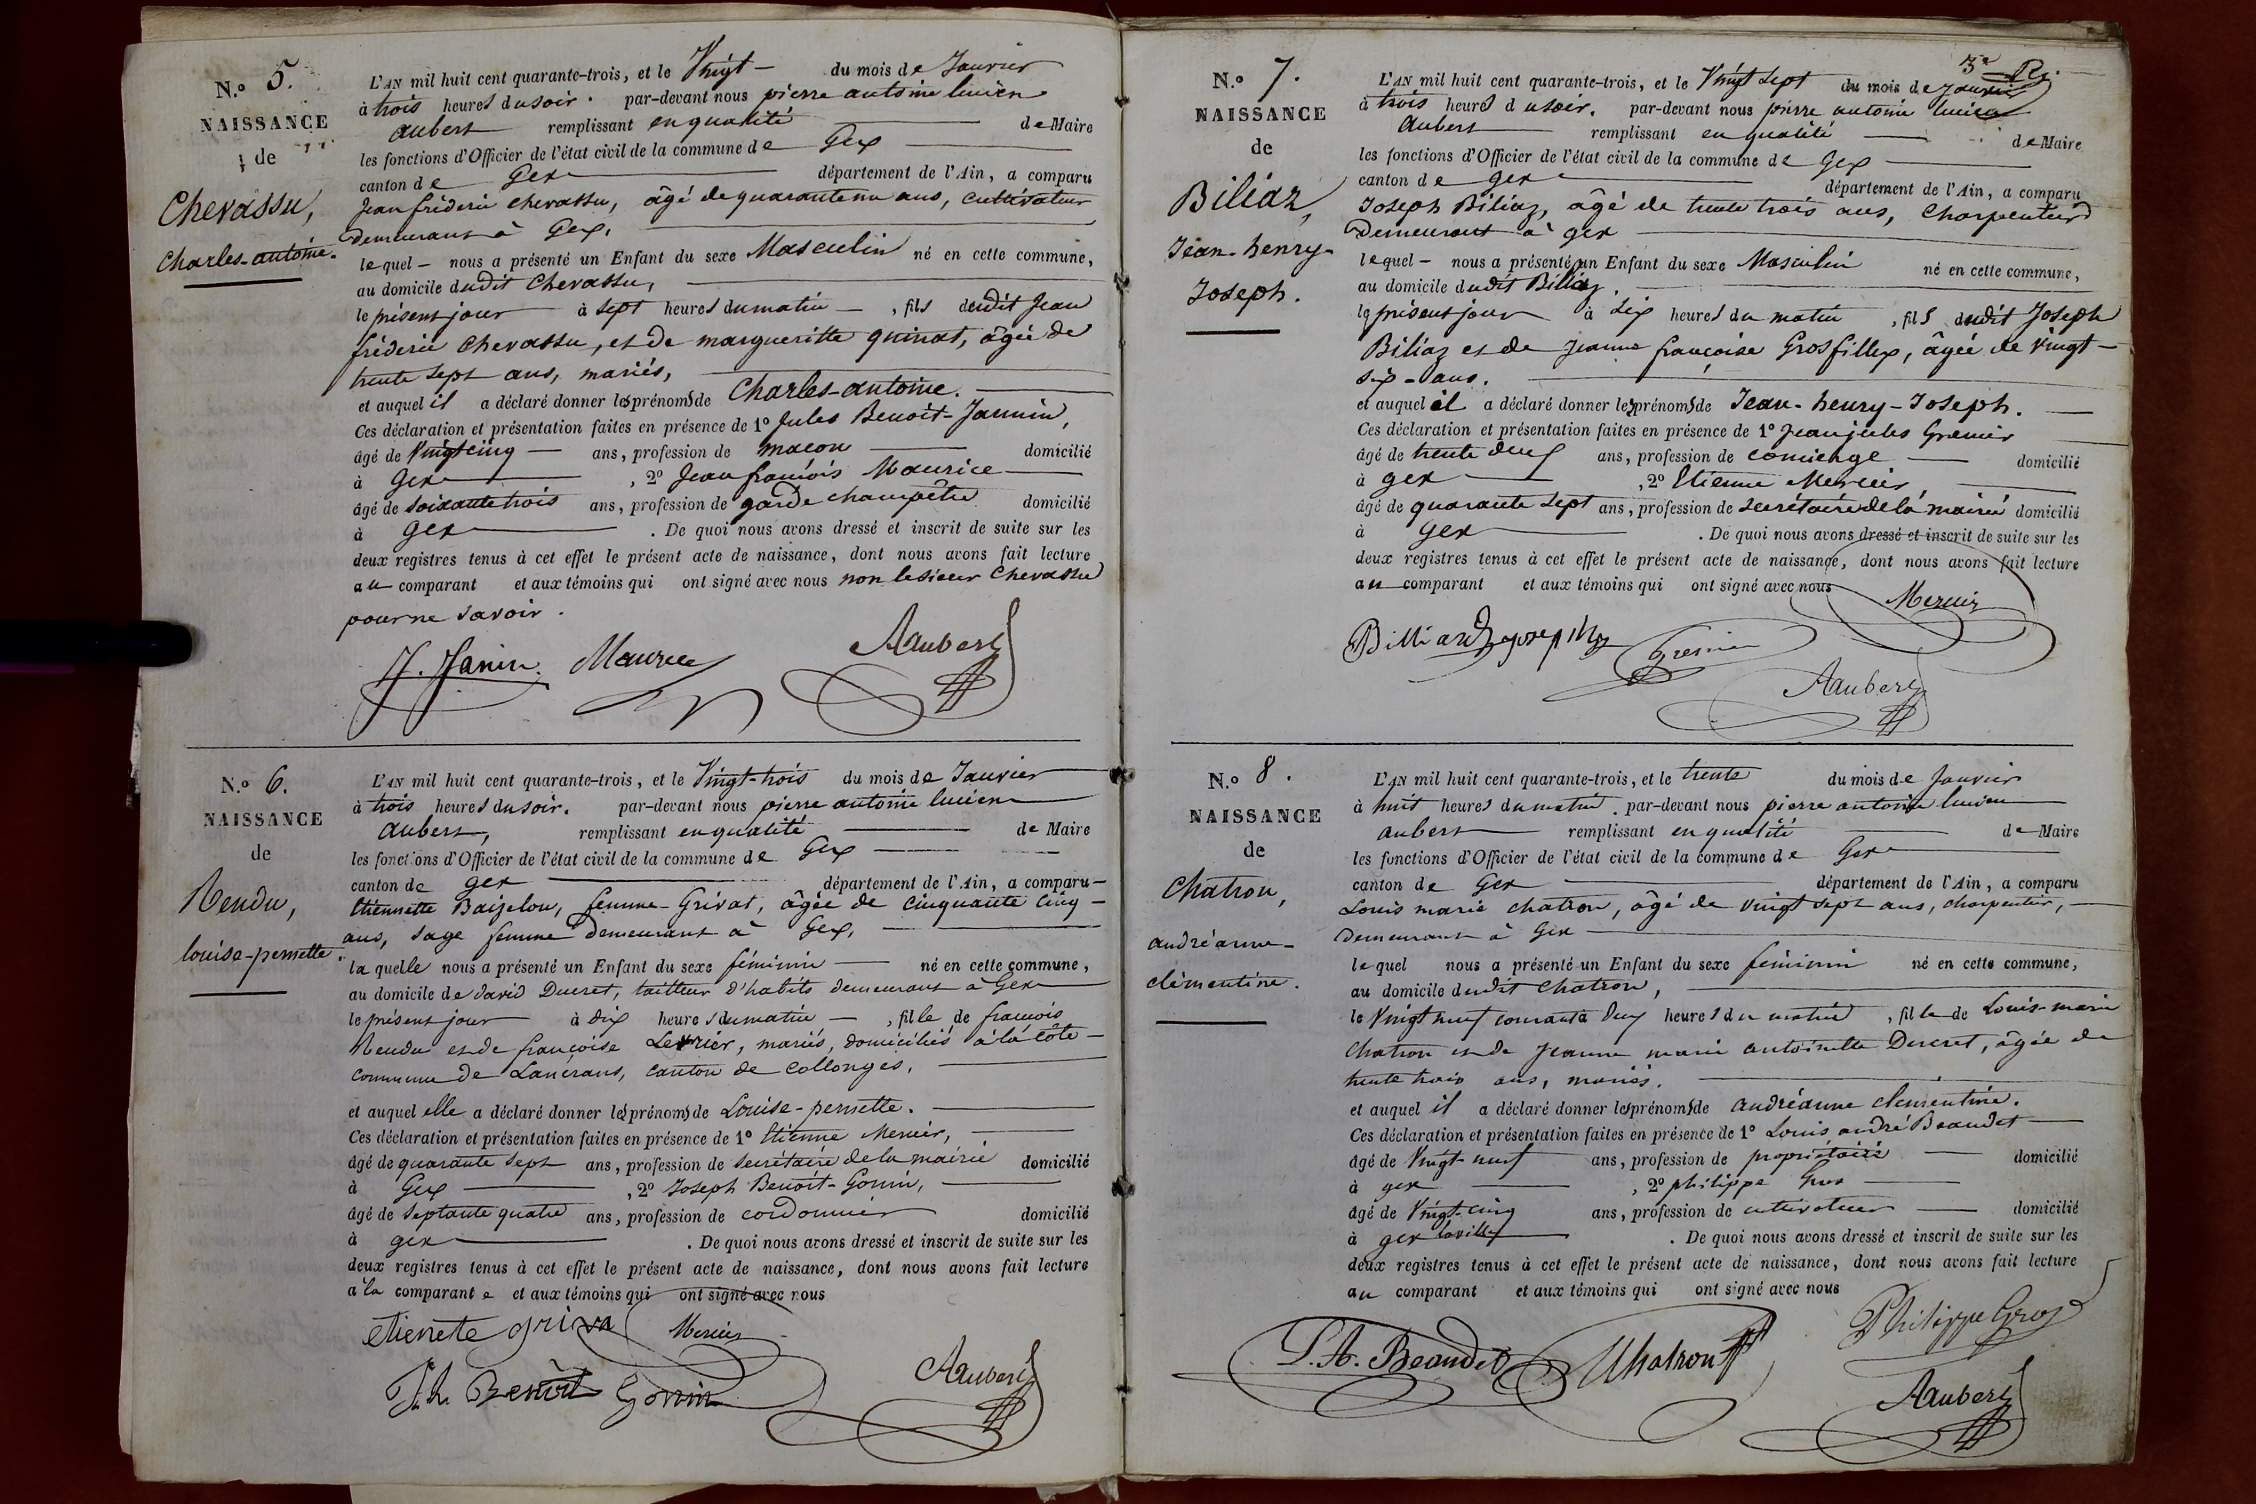 N.° 5.
NAISSANCE
de
Chevassu,
Charles-antoine.
L'AN mil huit cent quarante-trois, et le Vingt — du mois de Janvier
à trois heures du soir. par-devant nous pierre antoine lucien
aubert remplissant en qualité de Maire
les fonctions d'Officier de l'état civil de la commune de Gex
canton de Gex département de l'Ain, a comparu
Jean fréderic chevassu, âgé de quarante un ans, cultivateur
demeurant à Gex,
lequel — nous a présenté un Enfant du sexe Masculin né en cette commune,
au domicile dudit Chevassu,
le présent jour à sept heures du matin —, fils dudit Jean
fréderic Chevassu, et de margueritte quinat, âgée de
trente sept ans, mariés,
et auquel il a déclaré donner les prénoms de Charles-antoine.
Ces déclaration et présentation faites en présence de 1° Jules Benoit-Jannin,
âgé de Vingt cinq — ans, profession de macon domicilié
à Gex, 2° Jean françois Maurice
âgé de soixante trois ans, profession de garde champêtre domicilié
à Gex. De quoi nous avons dressé et inscrit de suite sur les
deux registres tenus à cet effet le présent acte de naissance, dont nous avons fait lecture
au comparant et aux témoins qui ont signé avec nous non le sieur Chevassu
pour ne savoir.
J. Janin. Maurice Aaubert
N.° 6.
NAISSANCE
de
Rendu,
louise-pernette.
L'AN mil huit cent quarante-trois, et le Vingt-trois du mois de Janvier
à trois heures du soir. par-devant nous pierre antoine lucien
aubert, remplissant en qualité de Maire
les fonctions d'Officier de l'état civil de la commune de Gex
canton de Gex département de l'Ain, a comparu
Etiennette Baizelon, femme-Grivat, âgée de cinquante cinq
ans, sage femme demeurant à Gex,
la quelle nous a présenté un Enfant du sexe féminin né en cette commune,
au domicile de david Ducret, tailleur d'habits demeurant à Gex
le présent jour à dix heures du matin —, fille de françois
Rendu et de françoise Levrier, mariés, domiciliés à la côte
commune de Lancrans, canton de Collonges,
et auquel elle a déclaré donner les prénoms de Louise-pernette.
Ces déclaration et présentation faites en présence de 1° Etienne Mercier,
âgé de quarante sept ans, profession de secrétaire de la mairie domicilié
à Gex, 2° Joseph Benoit-Gonin,
âgé de septante quatre ans, profession de cordonnier domicilié
à gex. De quoi nous avons dressé et inscrit de suite sur les
deux registres tenus à cet effet le présent acte de naissance, dont nous avons fait lecture
à la comparante et aux témoins qui ont signé avec nous
etienete griva Mercier
Benoit Gonin Aaubert
3e
N.° 7.
NAISSANCE
de
Biliaz,
Jean-henry-
Joseph.
L'AN mil huit cent quarante-trois, et le Vingt sept du mois de Janvier
à trois heures du soir. par-devant nous pierre antoine lucien
Aubert remplissant en qualité de Maire
les fonctions d'Officier de l'état civil de la commune de Gex
canton de gex département de l'Ain, a comparu
Joseph Biliaz, âgé de trente trois ans, Charpentier
demeurant à gex
lequel — nous a présenté un Enfant du sexe Masculin né en cette commune,
au domicile dudit Biliaz.
le présent jour à six heures du matin, fils dudit Joseph
Biliaz et de Jeanne françoise Grosfillex, âgée de vingt-
six-ans.
et auquel il a déclaré donner les prénoms de Jean-henry-Joseph.
Ces déclaration et présentation faites en présence de 1° Jean jules Grenier
âgé de trente deux ans, profession de concierge domicilié
à gex, 2° Etienne Mercier
âgé de quarante sept ans, profession de secrétaire de la mairie domicilié
à Gex. De quoi nous avons dressé et inscrit de suite sur les
deux registres tenus à cet effet le présent acte de naissance, dont nous avons fait lecture
au comparant et aux témoins qui ont signé avec nous Mercier
Billiard joseph Grenier
Aaubert
N.° 8.
NAISSANCE
de
Chatron,
andréanne-
clémentine.
L'AN mil huit cent quarante-trois, et le trente du mois de Janvier
à huit heures du matin. par-devant nous pierre antoine lucien
aubert remplissant en qualité de Maire
les fonctions d'Officier de l'état civil de la commune de Gex
canton de Gex département de l'Ain, a comparu
Louis marie chatron, âgé de vingt sept ans, charpentier,
demeurant à Gex
lequel nous a présenté un Enfant du sexe féminin né en cette commune,
au domicile dudit Chatron,
le Vingt neuf courant à deux heures du matin, fille de Louis-marie
Chatron et de Jeanne marie antoinette Ducret, âgée de
trente trois ans, mariés.
et auquel il a déclaré donner les prénoms de andréanne clémentine.
Ces déclaration et présentation faites en présence de 1° Louis andré Beaudet
âgé de Vingt-neuf ans, profession de propriétaire domicilié
à gex, 2° philippe Gros
âgé de Vingt-cinq ans, profession de cultivateur domicilié
à gex laville. De quoi nous avons dressé et inscrit de suite sur les
deux registres tenus à cet effet le présent acte de naissance, dont nous avons fait lecture
au comparant et aux témoins qui ont signé avec nous
L. A. Beaudet Chatron Philippe Gros
Aaubert